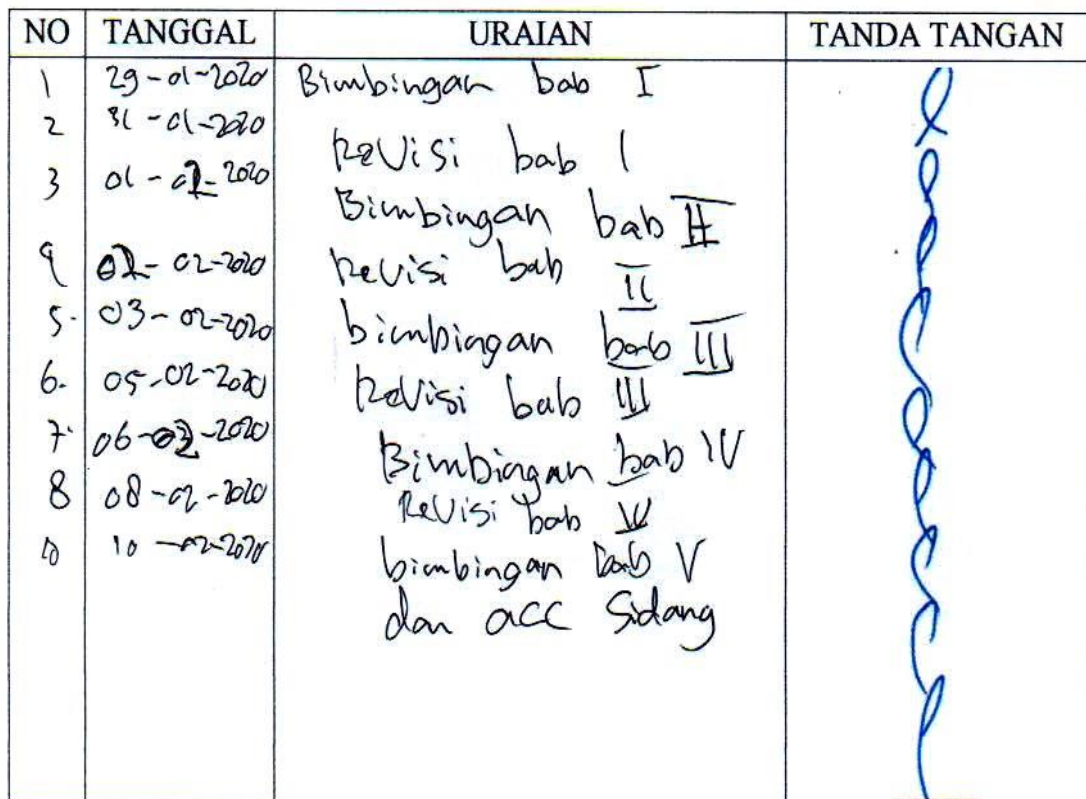 NO TANGGAL URAIAN TANDA TANGAN
1 29-01-2020 Bimbingan bab I
2 31-01-2020 Revisi bab I
3 01-02-2020 Bimbingan bab II
4 02-02-2020 Revisi bab II
5. 03-02-2020 bimbingan bab III
6. 05-02-2020 Revisi bab III
7. 06-02-2020 Bimbingan bab IV
8 08-02-2020 Revisi bab IV
10 10-02-2020 bimbingan bab V
dan acc Sidang